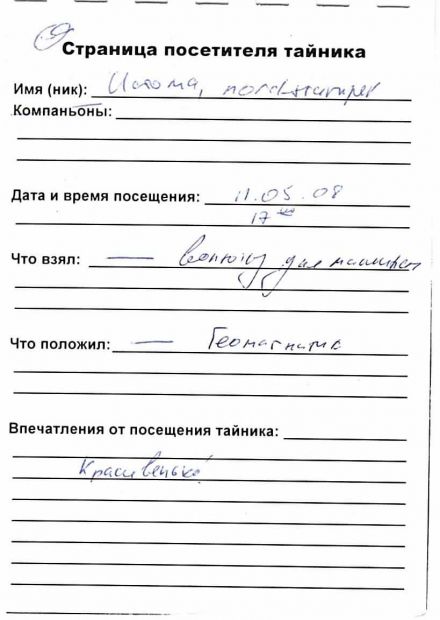 Страница посетителя тайника
Имя (ник):
Компаньоны:
Дата и время посещения: 11.05.08
17
Что взял: — вонючку для машины
Что положил: — Геомагнитик
Впечатления от посещения тайника:
Красивенько!